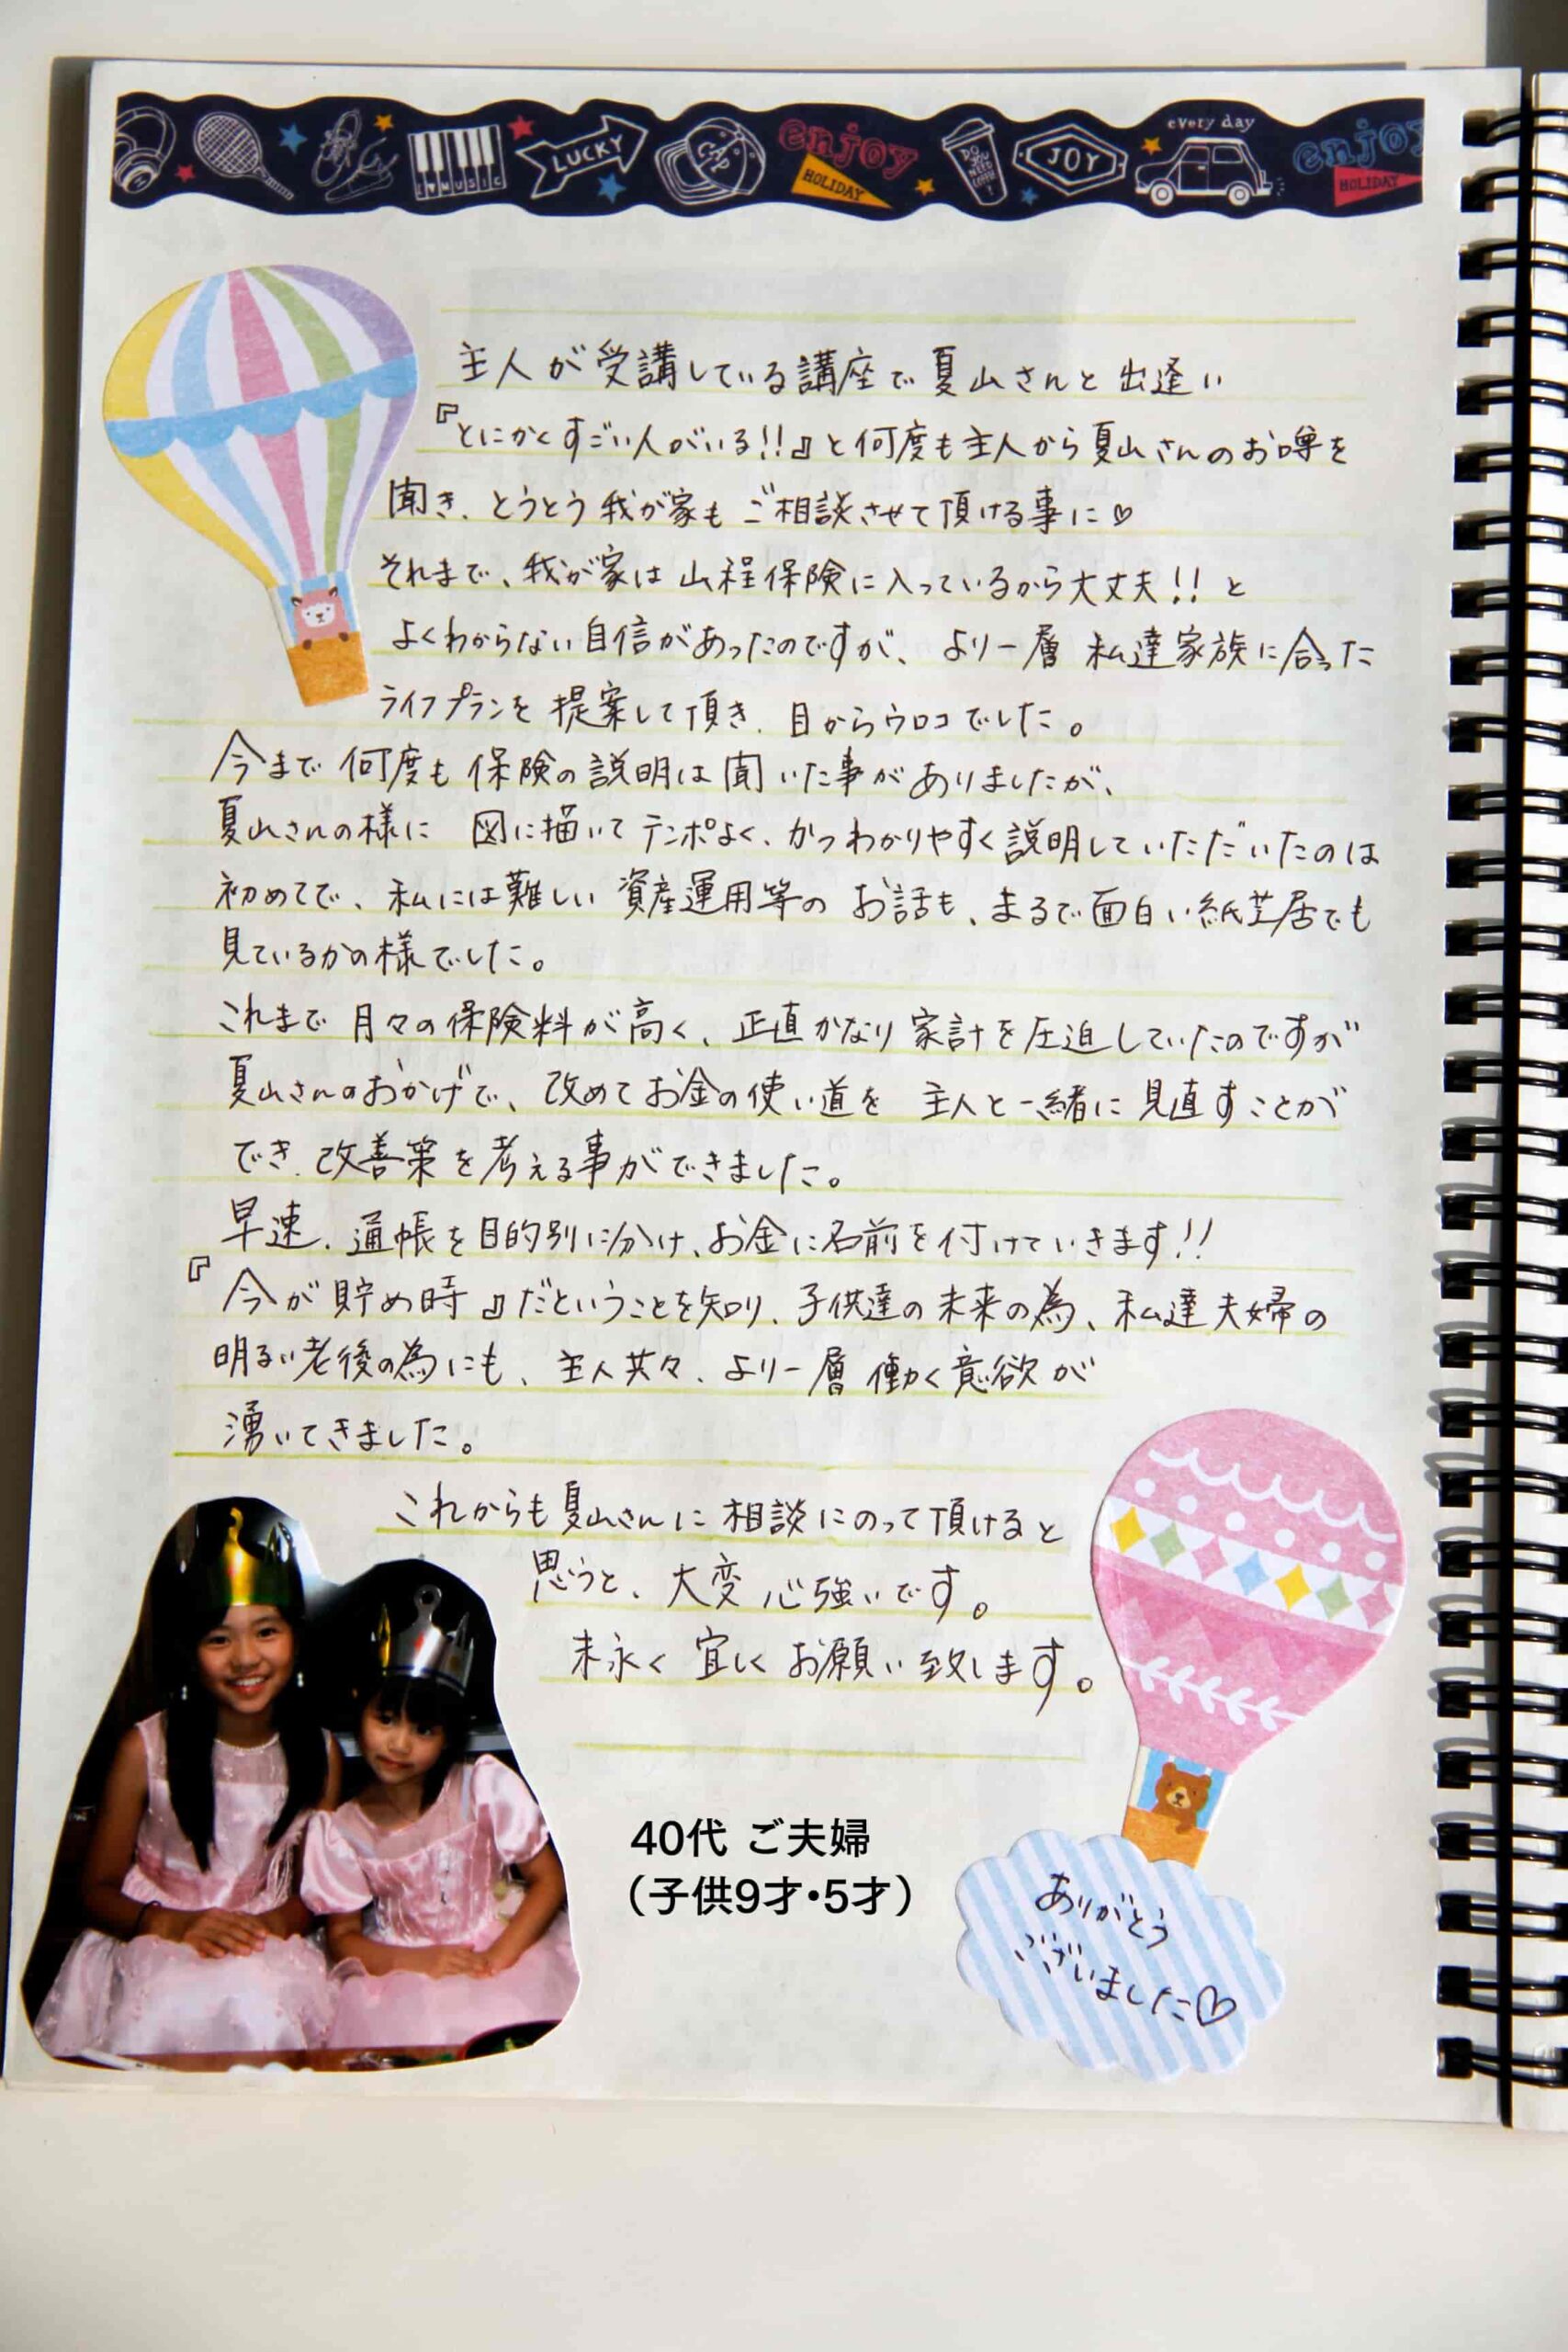 I ♥ MUSIC
LUCKY
enjoy
HOLIDAY
DO YOU NEED COFFEE?
JOY
every day
enjoy
HOLIDAY
主人が受講している講座で夏山さんと出逢い
『とにかくすごい人がいる!!』と何度も主人から夏山さんのお噂を
聞き、とうとう我が家もご相談させて頂ける事に♡
それまで、我が家は山程保険に入っているから大丈夫!!と
よくわからない自信があったのですが、より一層私達家族に合った
ライフプランを提案して頂き、目からウロコでした。
今まで何度も保険の説明は聞いた事がありましたが、
夏山さんの様に 図に描いてテンポよく、かつわかりやすく説明していただいたのは
初めてで、私には難しい資産運用等のお話も、まるで面白い紙芝居でも
見ているかの様でした。
これまで月々の保険料が高く、正直かなり家計を圧迫していたのですが
夏山さんのおかげで、改めてお金の使い道を主人と一緒に見直すことが
でき、改善策を考える事ができました。
早速、通帳を目的別に分け、お金に名前を付けていきます!!
『今が貯め時』だということを知り、子供達の未来の為、私達夫婦の
明るい老後の為にも、主人共々、より一層働く意欲が
湧いてきました。
これからも夏山さんに相談にのって頂けると
思うと、大変心強いです。
末永く宜しくお願い致します。
40代 ご夫婦
（子供9才・5才）
ありがとう
ございました♡